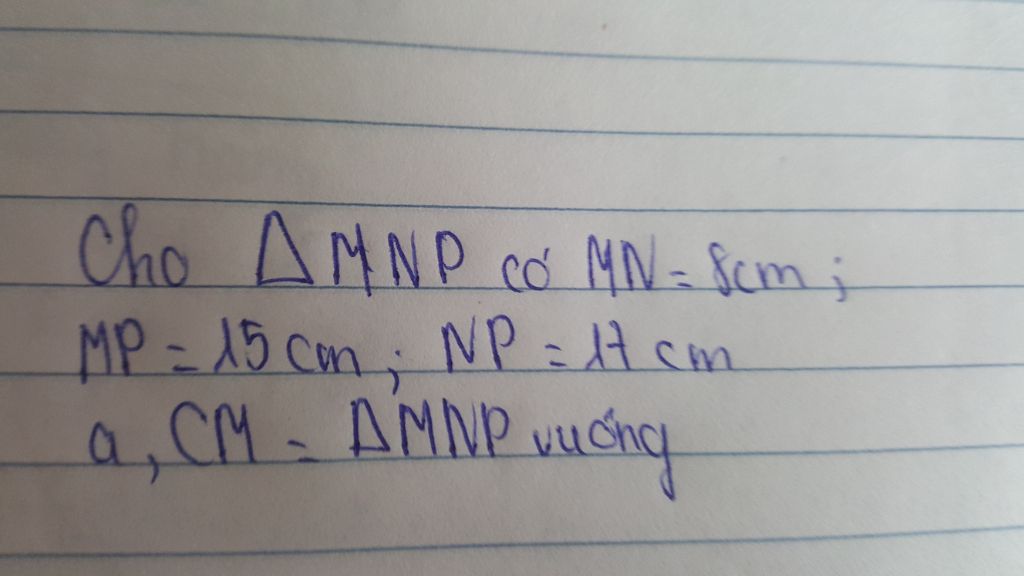 Cho ΔMNP có MN = 8cm ;
MP = 15 cm ; NP = 17 cm
a, CM = ΔMNP vuông